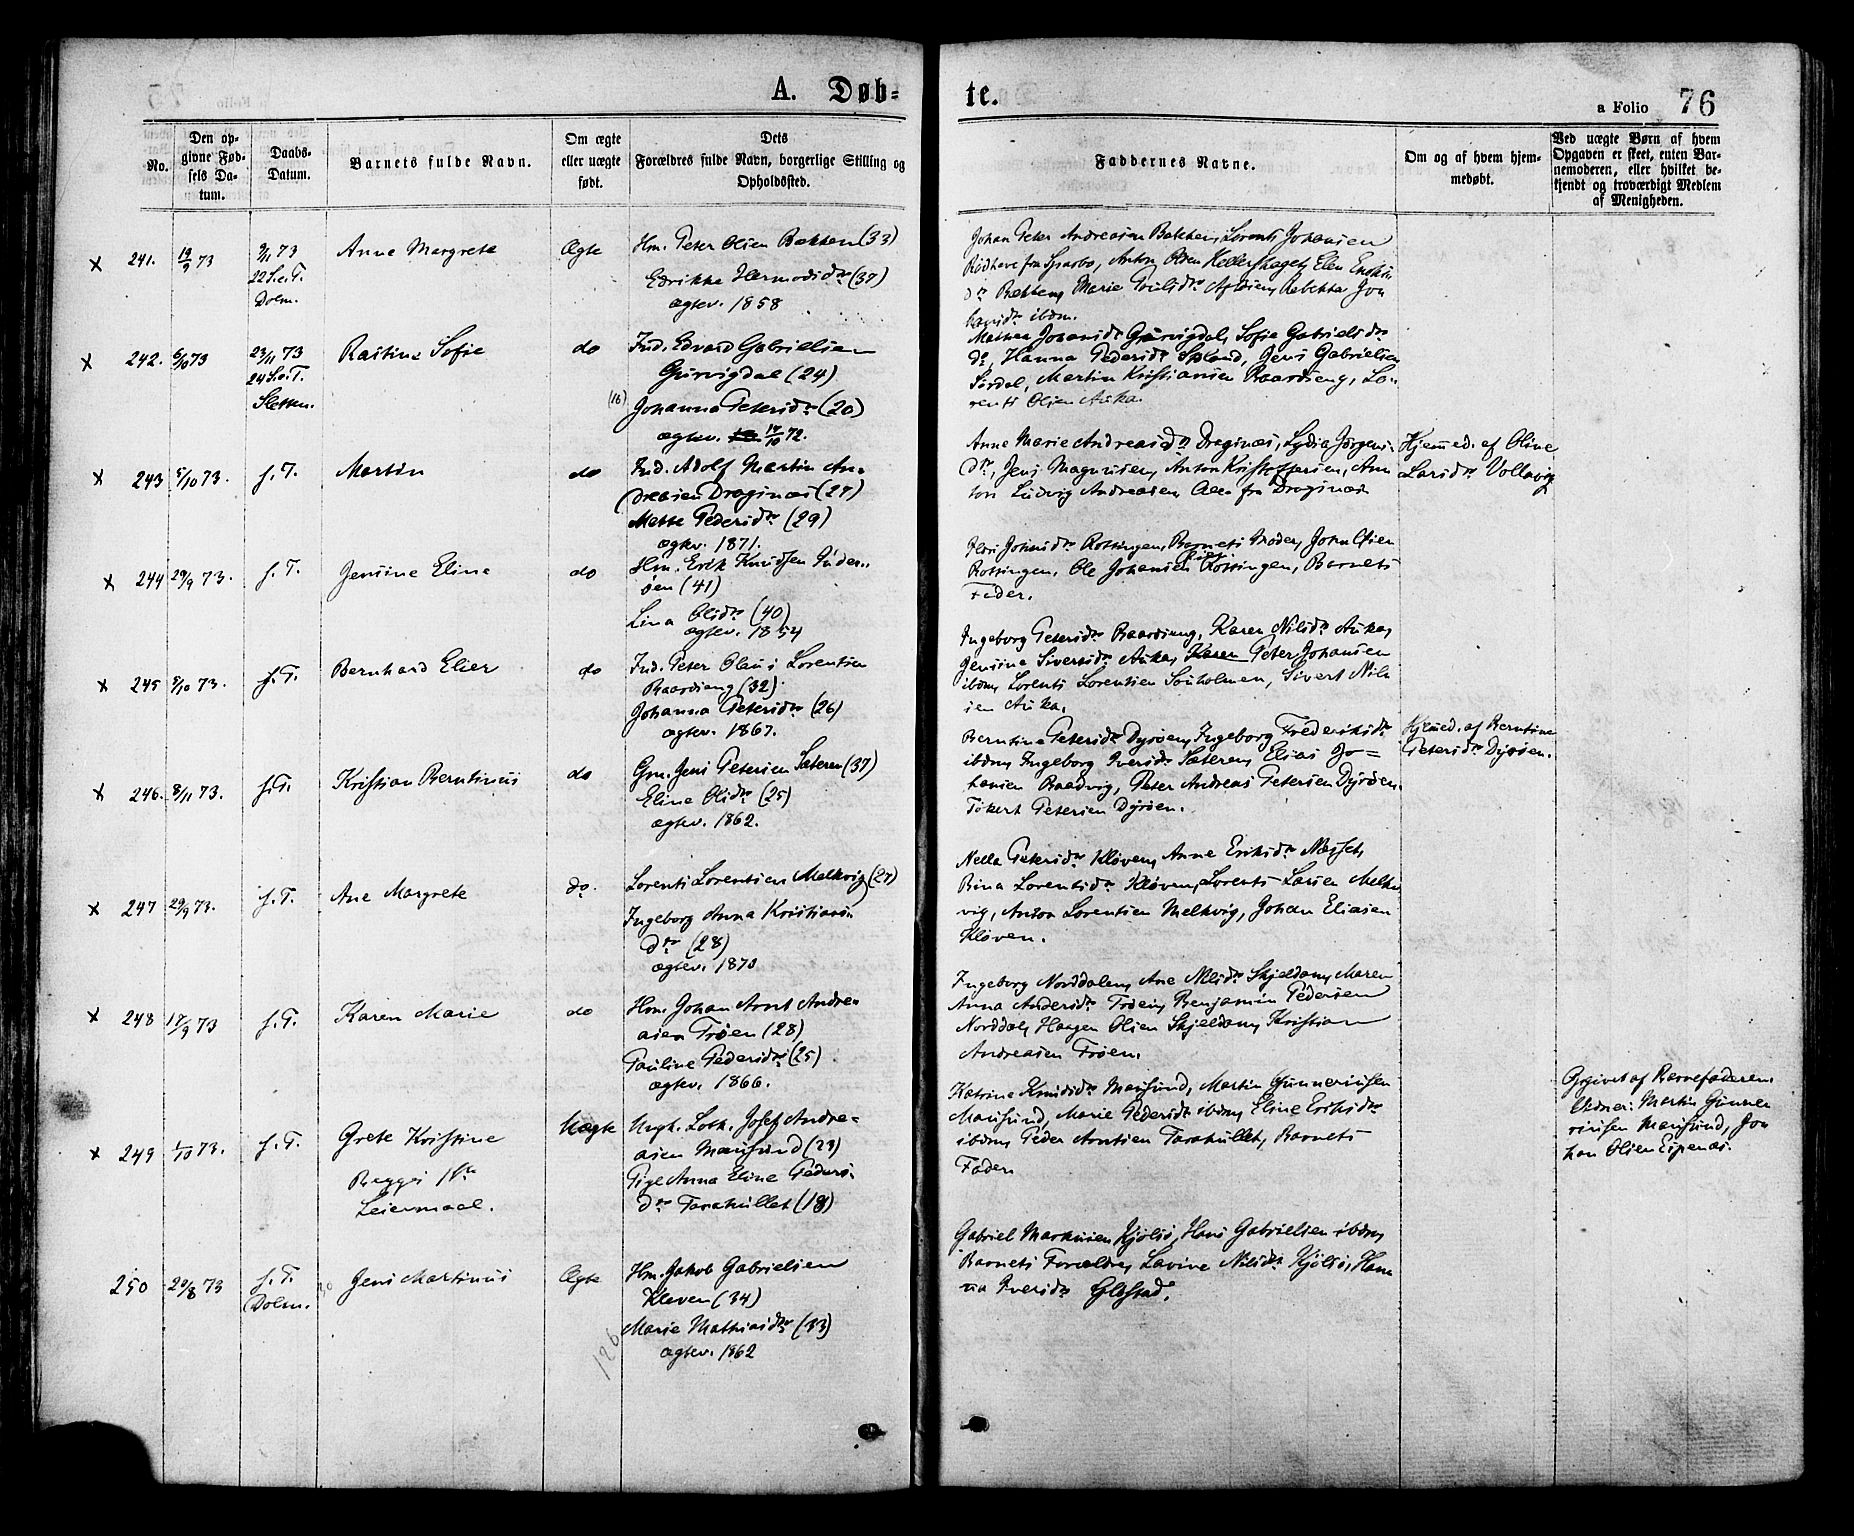 A. Døb-
te.
a Folio 76
No.
Den op-
givne Fød-
sels Da-
tum.
Daabs-
Datum.
Barnets fulde Navn.
Om ægte
eller uægte
født.
Dets
Forældres fulde Navn, borgerlige Stilling og
Opholdssted.
Faddernes Navne.
Om og af hvem hjem-
medøbt.
Ved uægte Børn af hvem
Opgaven er skeet, enten Bar-
nemoderen, eller hvilket be-
kjendt og troværdigt Medlem
af Menigheden.
x 241. 19/9 73
9/11 73
22 S.e.T.
Dolm.
Anne Margrete
Ægte
Hm. Peter Olsen Bakken (33)
Edrikke Hermodsdtr (37)
ægtev. 1858
Johan Peter Andreasen Bakken, Lorents Johansen
Rødhave fra Sparbo, Anton Olsen Ellen
dtr Bakken, Marie Poulsdtr Rebekka Jon
ibdm.
x 242. 5/10 73
23/11 73
24 S.e.T.
Sletten.
Rastine Sofie
do
Ind. Edvard Gabrielsen
Gurvigdal (24)
(16) Johanna Petersdtr (20)
ægtev. 17/10 72.
Johansdtr Gurvigdal, Sofie Gabrielsdtr
do, Hanna Pedersdtr Jens Gabrielsen
Martin Kristiansen Baardseng, Lo-
rents Olsen Auka.
x 243 5/10 73. f. T.
Martin
do
Ind. Adolf Martin An-
dreasen Draginæs (27)
Mette Pedersdtr (29)
ægtev. 1871.
Anne Marie Andreasdtr Draginæs, Lydia Jørgens-
dtr, Jens Magnussen, Anton Kristoffersen, An-
ton Ludvig Andreasen, Alle fra Draginæs
Hjemmed. af Oline
Larsdtr Vollavig
x 244 29/9 73. f. T.
Jensine Eline
do
Hm. Erik Knudsen Inder-
øen (41)
Lina Olsdtr (40)
ægtev. 1854
Johnsdtr Rottingen, Barnets Moder, John Olsen
Rottingen, Ole Johansen Rottingen, Barnets
Fader.
x 245 5/10 73. f. T.
Bernhard Elier
do
Ind. Peter Olaus Lorentsen
Baardseng (32)
Johanna Petersdtr (26)
ægtev. 1867.
Ingeborg Petersdtr Baardseng, Karen Nilsdtr Auka,
Jensine Sivertsdtr Auka, Karen Peter Johansen
ibdm, Lorents Lorentsen Souholmen, Sivert Nils-
sen Auka.
x 246. 8/11 73. f. T.
Kristian Berntinus
do
Gm. Jens Petersen Sæteren (37)
Eline Olsdtr (25)
ægtev. 1862.
Berntine Petersdtr Dyrøen, Ingeborg Frederiksdtr
ibdm, Ingeborg Iversdtr Sæteren, Elias Jo=
hansen Baadvig, Peter Andreas Petersen Dyrøen,
Tøkert Petersen Dyrøen.
Hjemmed. af Berntine
Petersdtr Dyrøen.
x 247 29/9 73. f. T.
Ane Margrete
do.
Lorents Lorentsen Melkvig (27)
Ingeborg Anna Kristians-
dtr (28)
ægtev. 1873
Nella Petersdtr Kløven, Anne Eriksdtr Næsset,
Bina Lorentsdtr Kløven, Lorents Larsen Melk-
vig, Anton Lorentsen Melkvig, Johan Eliasen
Kløven.
x 248 17/9 73 f. T.
Karen Marie
do
Hm. Johan Arnt Andre-
asen Trøen (28)
Pauline Pedersdtr (25)
ægtev. 1866.
Ingeborg Norddalen, Ane Nilsdtr Skjeldam, Maren
Anna Andersdtr Trøen, Benjamin Pedersen
Norddal, Haagen Olsen Skjeldam, Kristian
Andreasen Trøen.
x 249 1/10 73. f. T.
Grete Kristine
Begges 1ste
Leiermaal.
Uægte
Ungk. Loth. Josef Andre-
asen Mausund (23)
Pige Anna Eline Peders-
dtr Tarahullet (18)
Katrine Knudsdtr Mausund, Martin Gunneriusen
Mausund, Marie Pedersdtr ibdm, Eline Eriksdtr
ibdm, Peder Arntsen Tarahullet, Barnets
Fader
Opgivet af Barnefaderen.
Vidner: Martin Gunne-
riusen Mausund, Jo-
han Olsen Espenæs.
250 20/8 73 f. T.
Dolm.
Jens Martinus
Ægte
Hm. Jakob Gabrielsen
Kleven (34)
Marie Mathiasdtr (33)
ægtev. 1862
126
Gabriel Markussen Kjølsø, Hans Gabrielsen ibdm,
Barnets Forældre, Lavine Nilsdtr Kjølsø, Han-
na Iversdtr Glastad.